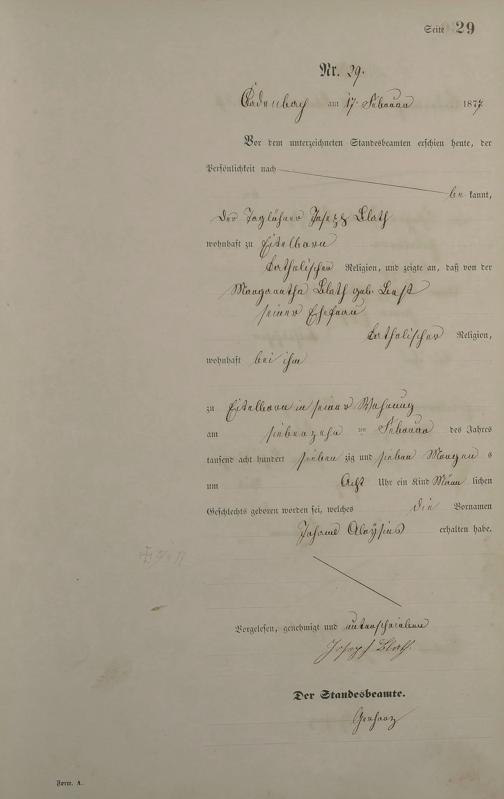 Seite 29
Nr. 29.
Cadenbach am 17 Februar 1877
Vor dem unterzeichneten Standesbeamten erschien heute, der
Persönlichkeit nach
be kannt,
Der Taglöhner Joseph Blath
wohnhaft zu Eitelborn
katholischer Religion, und zeigte an, daß von der
Margaretha Blath geb.
seiner Ehefrau
katholischer Religion,
wohnhaft bei ihm
zu Eitelborn in seiner Wohnung
am siebenzehn ten Februar des Jahres
tausend acht hundert sieben zig und sieben Morgen s
um Acht Uhr ein Kind Männ lichen
Geschlechts geboren worden sei, welches die Vornamen
Johann Aloysius erhalten habe.
Vorgelesen, genehmigt und unterschrieben
Joseph Blath
Der Standesbeamte.
Form. A.